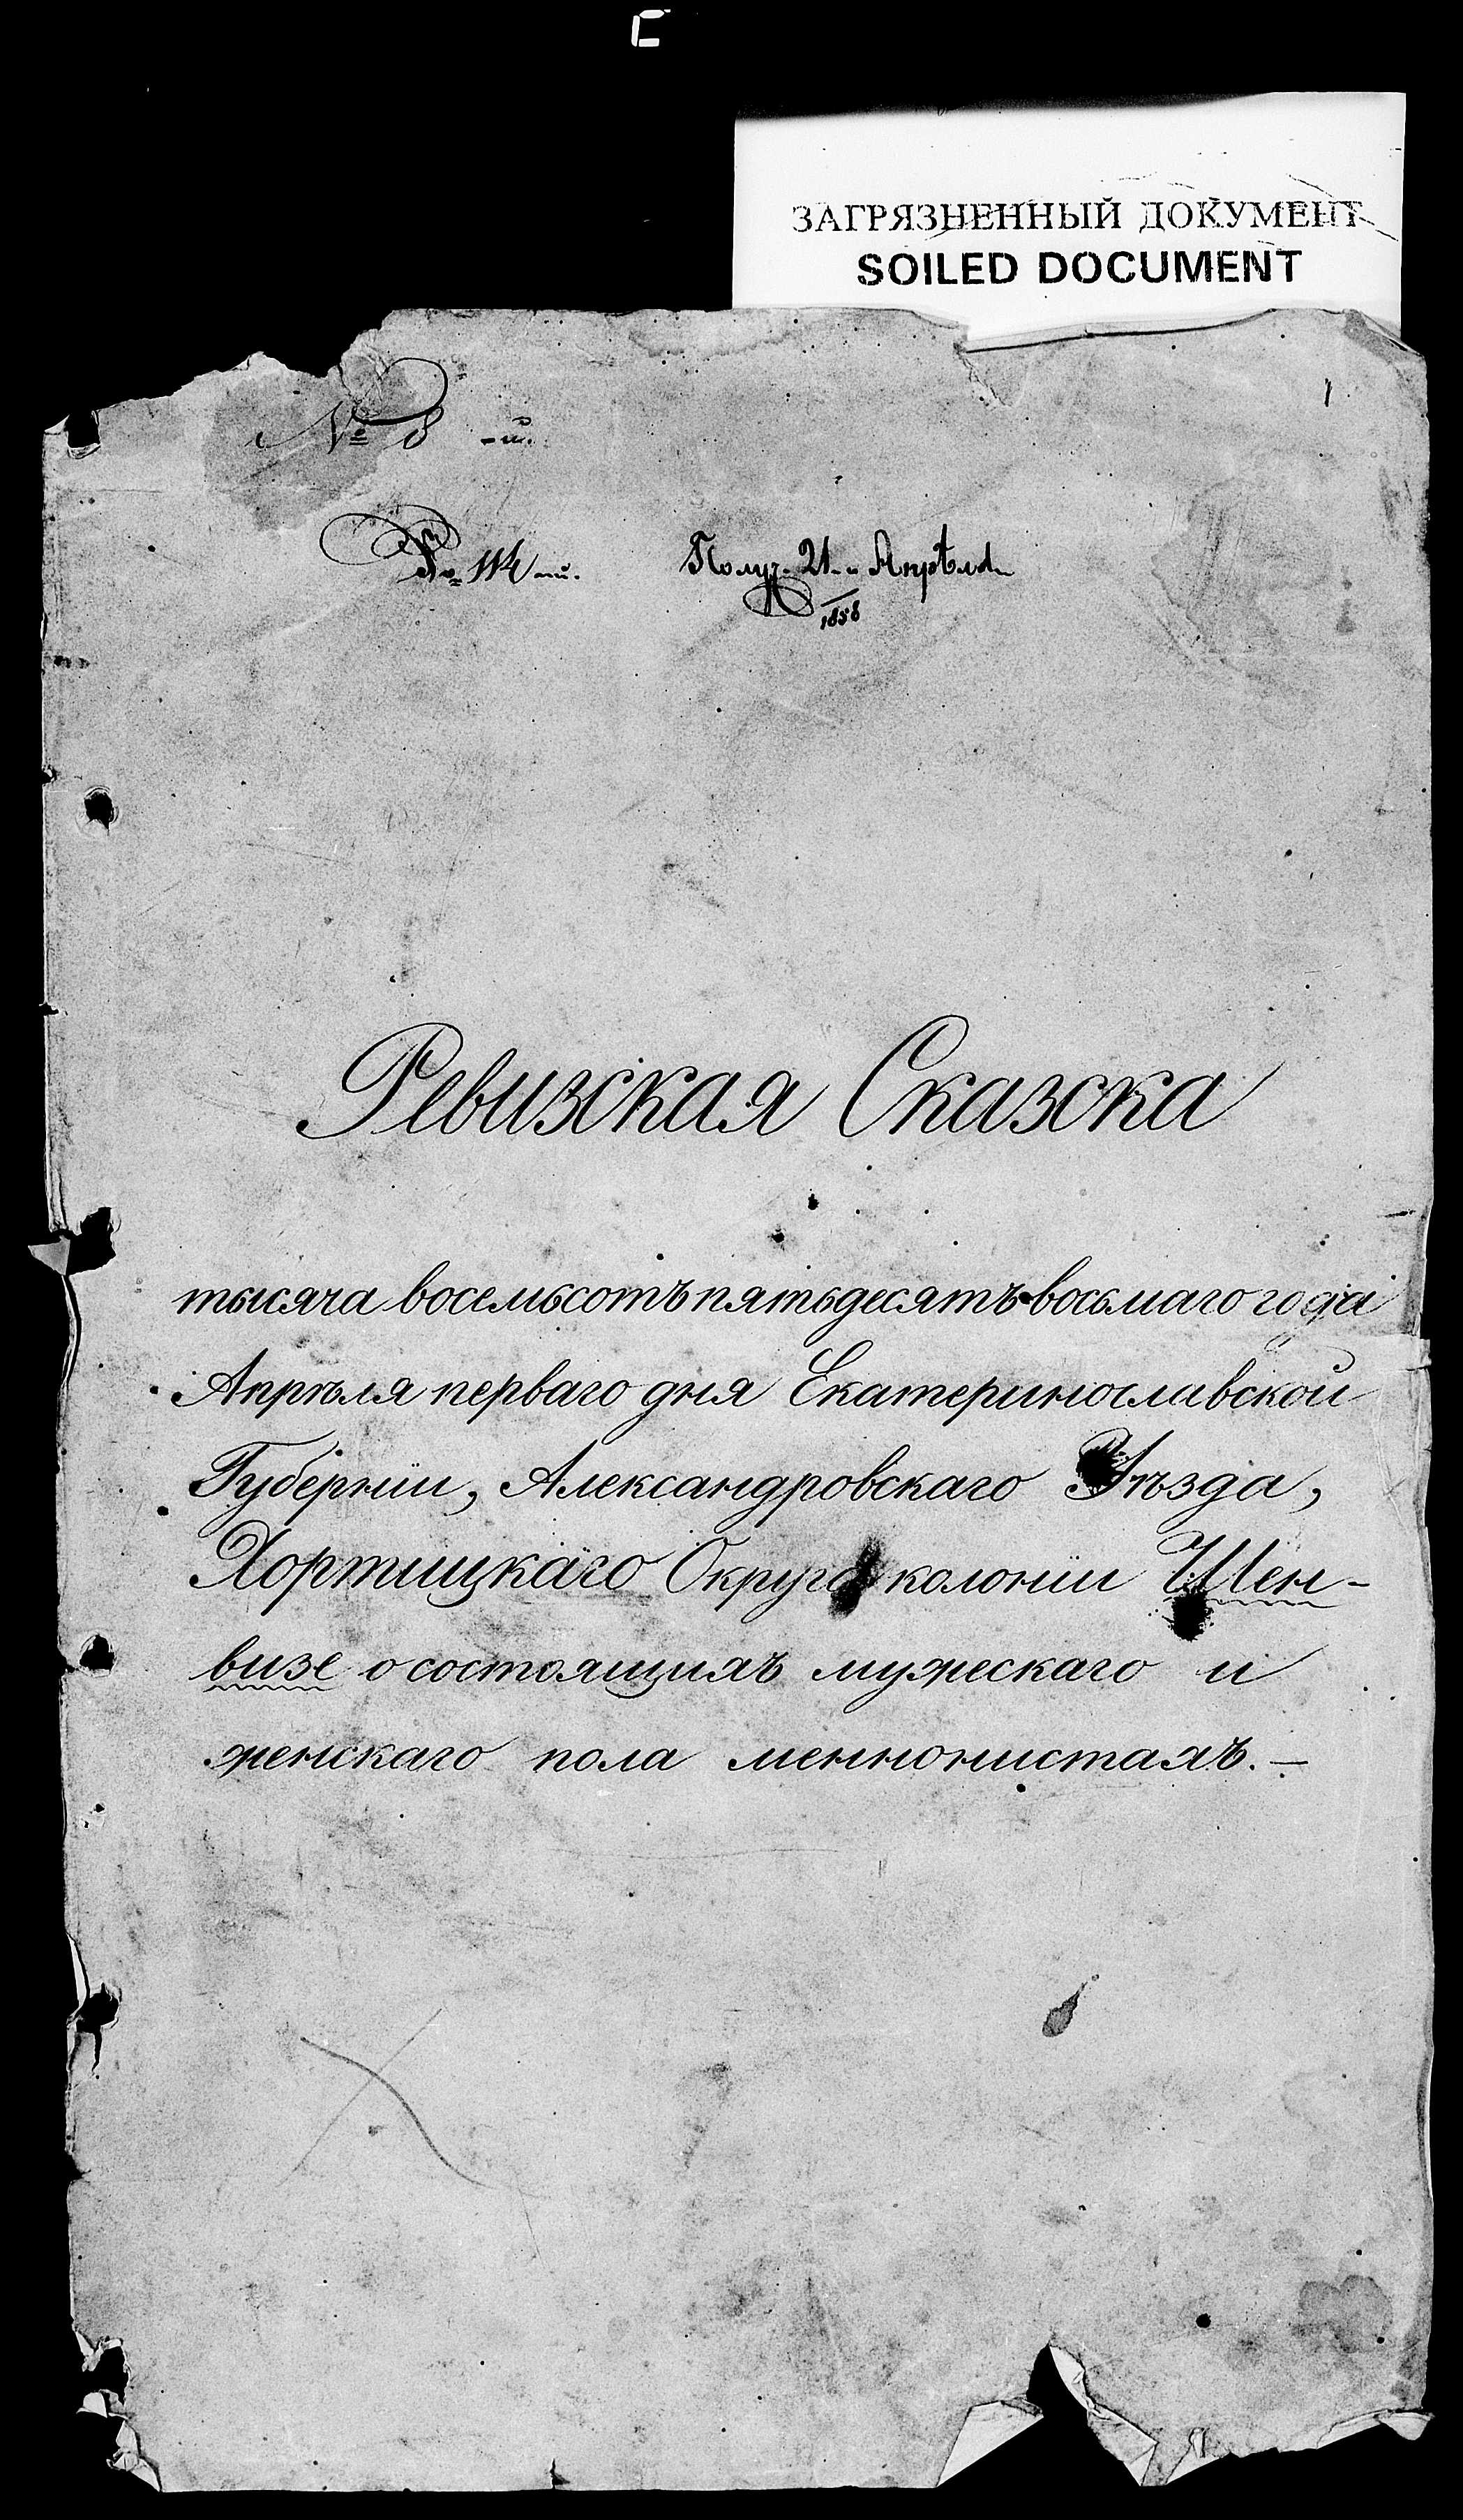 ЗАГРЯЗНЕННЫЙ ДОКУМЕНТ
SOILED DOCUMENT
1
№ 8 -й.
№ 114-й. Получ. 21-го Апрѣля
1858
Ревизская Сказка
тысяча восемьсотъ пятьдесятъ восьмаго года
Апрѣля перваго дня Екатеринославской
Губерніи, Александровскаго Уѣзда,
Хортицкаго Округа колоніи Шен-
визе о состоящихъ мужескаго и
женскаго пола меннонистахъ. —